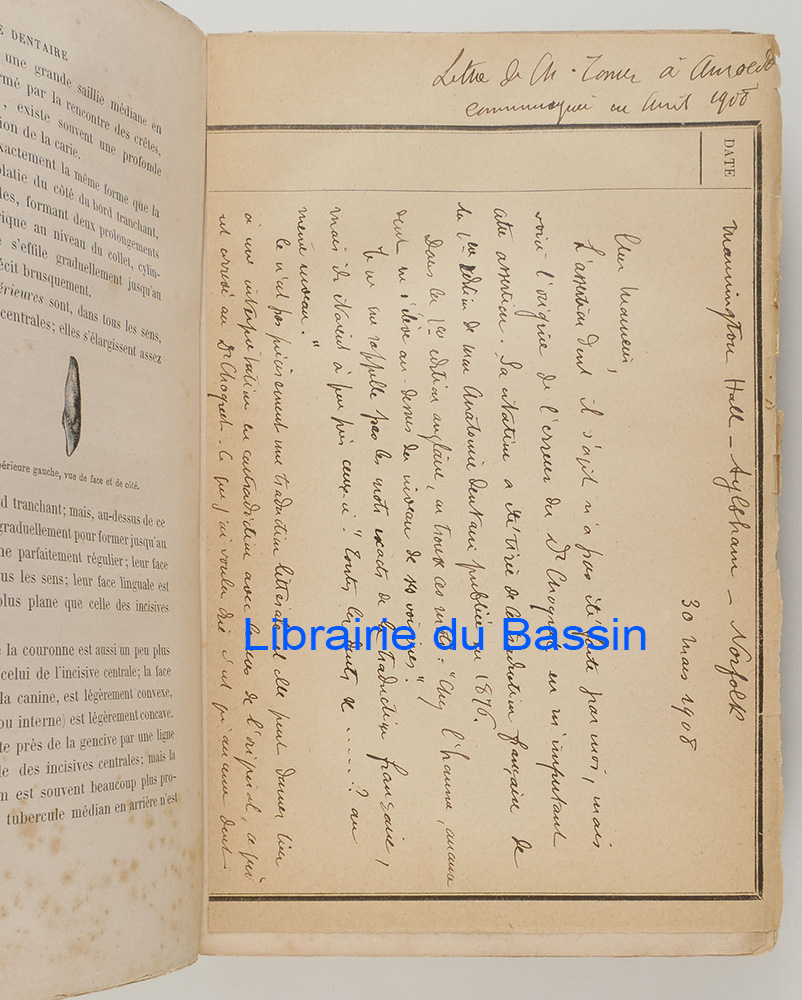 E DENTAIRE
une grande saillie médiane en
rmé par la rencontre des crêtes,
, existe souvent une profonde
ion de la carie.
exactement la même forme que la
platie du côté du bord tranchant,
les, formant deux prolongements
rique au niveau du collet, cylin-
e s'effile graduellement jusqu'au
écit brusquement.
érieures sont, dans tous les sens,
centrales; elles s'élargissent assez
périeure gauche, vue de face et de côté.
d tranchant; mais, au-dessus de ce
graduellement pour former jusqu'au
ne parfaitement régulier; leur face
us les sens; leur face linguale est
plus plane que celle des incisives
e la couronne est aussi un peu plus
celui de l'incisive centrale; la face
la canine, est légèrement convexe,
ou interne) est légèrement concave.
te près de la gencive par une ligne
le des incisives centrales; mais la
n est souvent beaucoup plus pro-
tubercule médian en arrière n'est
Lettre de Ch. Tomes à Amoedo
communiquée en Avril 1908
DATE
Mannington Hall - Aylsham - Norfolk
30 mars 1908
Cher Monsieur,
L'assertion dont il s'agit n'a pas été faite par moi, mais
voici l'origine de l'erreur du Dr Choquet en m'imputant
cette assertion. Sa citation a été tirée de la traduction française de
la 1ere édition de mon Anatomie dentaire publiée en 1876.
Dans la 1ere édition anglaise, on trouve ces mots: "Chez l'homme, aucune
dent ne s'élève au-dessus du niveau de ses voisines."
Je ne me rappelle pas les mots exacts de la traduction française,
mais ils étaient à peu près ceux-ci "Toutes les dents se ......? au
même niveau."
Ce n'est pas précisément une traduction littérale et elle peut donner lieu
à une interprétation en contradiction avec le sens de l'original, ce qui
est arrivé au Dr Choquet. Ce que j'ai voulu dire c'est qu'aucune dent
Librairie du Bassin